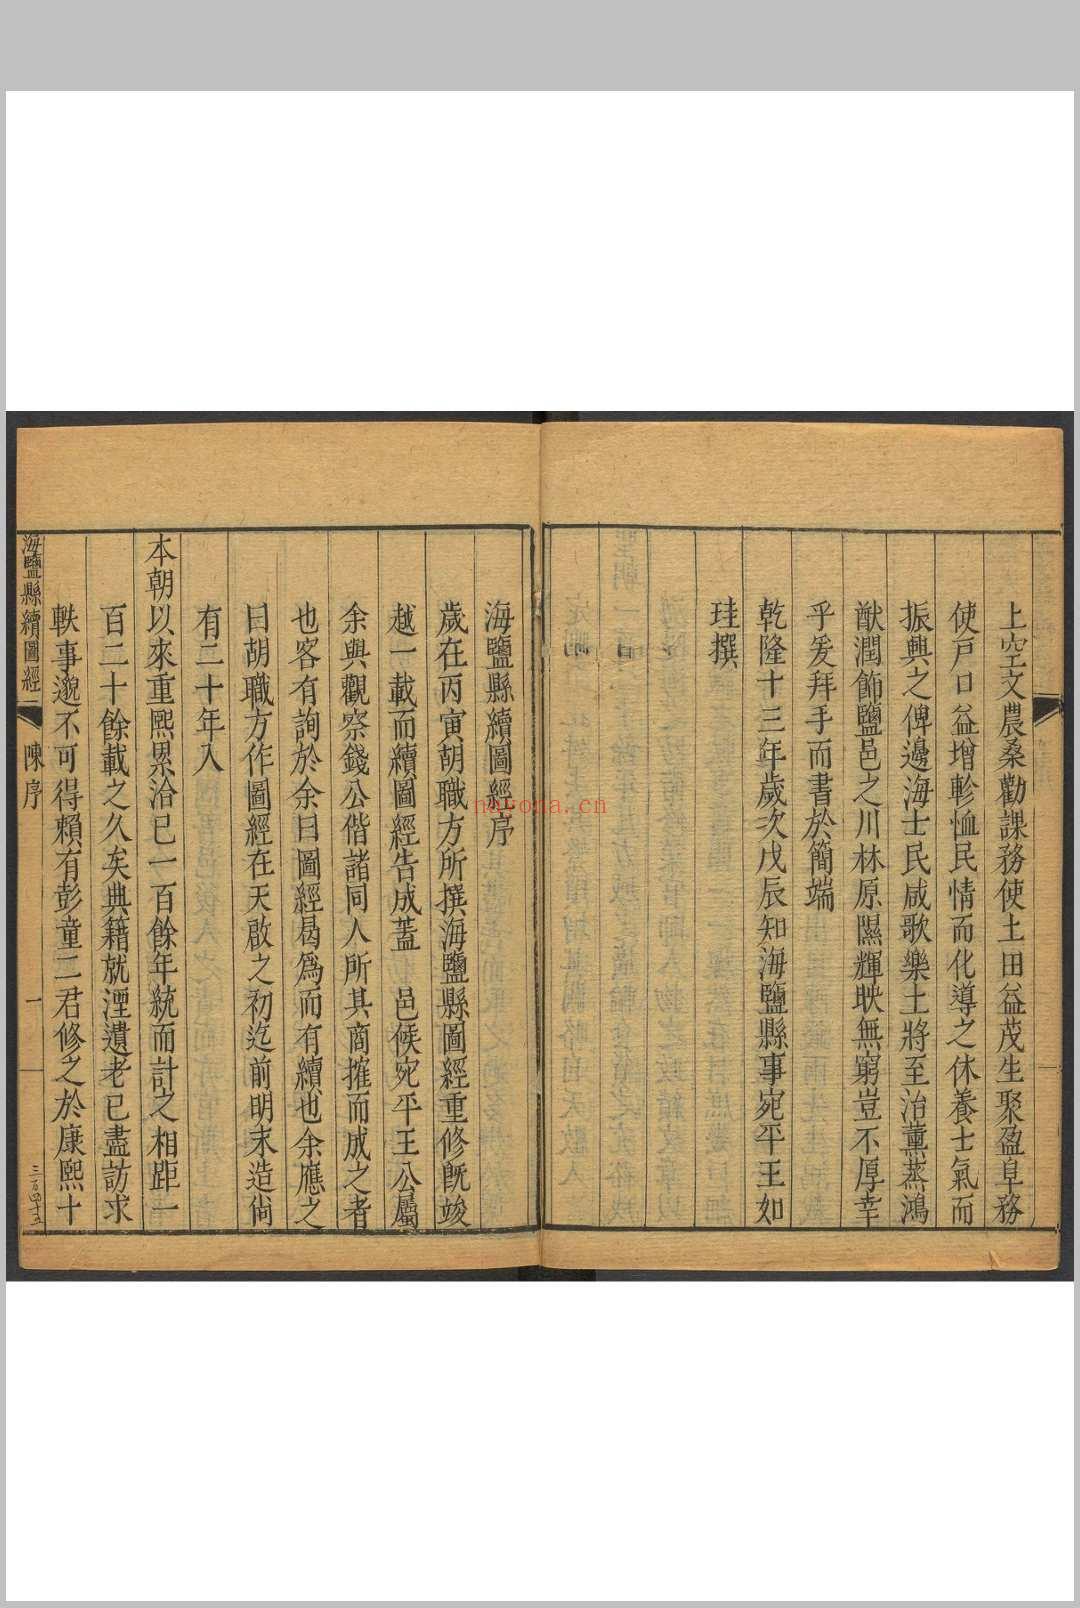 上空文農桑勸課務使土田益茂生聚盈阜務
使戸口益增軫恤民情而化導之休養士氣而
振興之俾邊海士民咸歌樂土將至治薰蒸鴻
猷潤飾鹽邑之川林原隰輝映無窮豈不厚幸
乎爰拜手而書於簡端
乾隆十三年歲次戊辰知海鹽縣事宛平王如
珪撰
海鹽縣續圖經序
歲在丙寅胡職方所撰海鹽縣圖經重修既竣
越一載而續圖經告成蓋 邑候宛平王公屬
余與觀察錢公偕諸同人所其商搉而成之者
也客有詢於余曰圖經曷為而有續也余應之
曰胡職方作圖經在天啟之初迄前明末造尙
有二十年入
本朝以來重熙累洽已一百餘年統而計之相距一
百二十餘載之久矣典籍就湮遺老已盡訪求
軼事邈不可得賴有彭童二君修之於康熙十
海鹽縣續圖經 陳序 一 三百四十五
nayona.cn